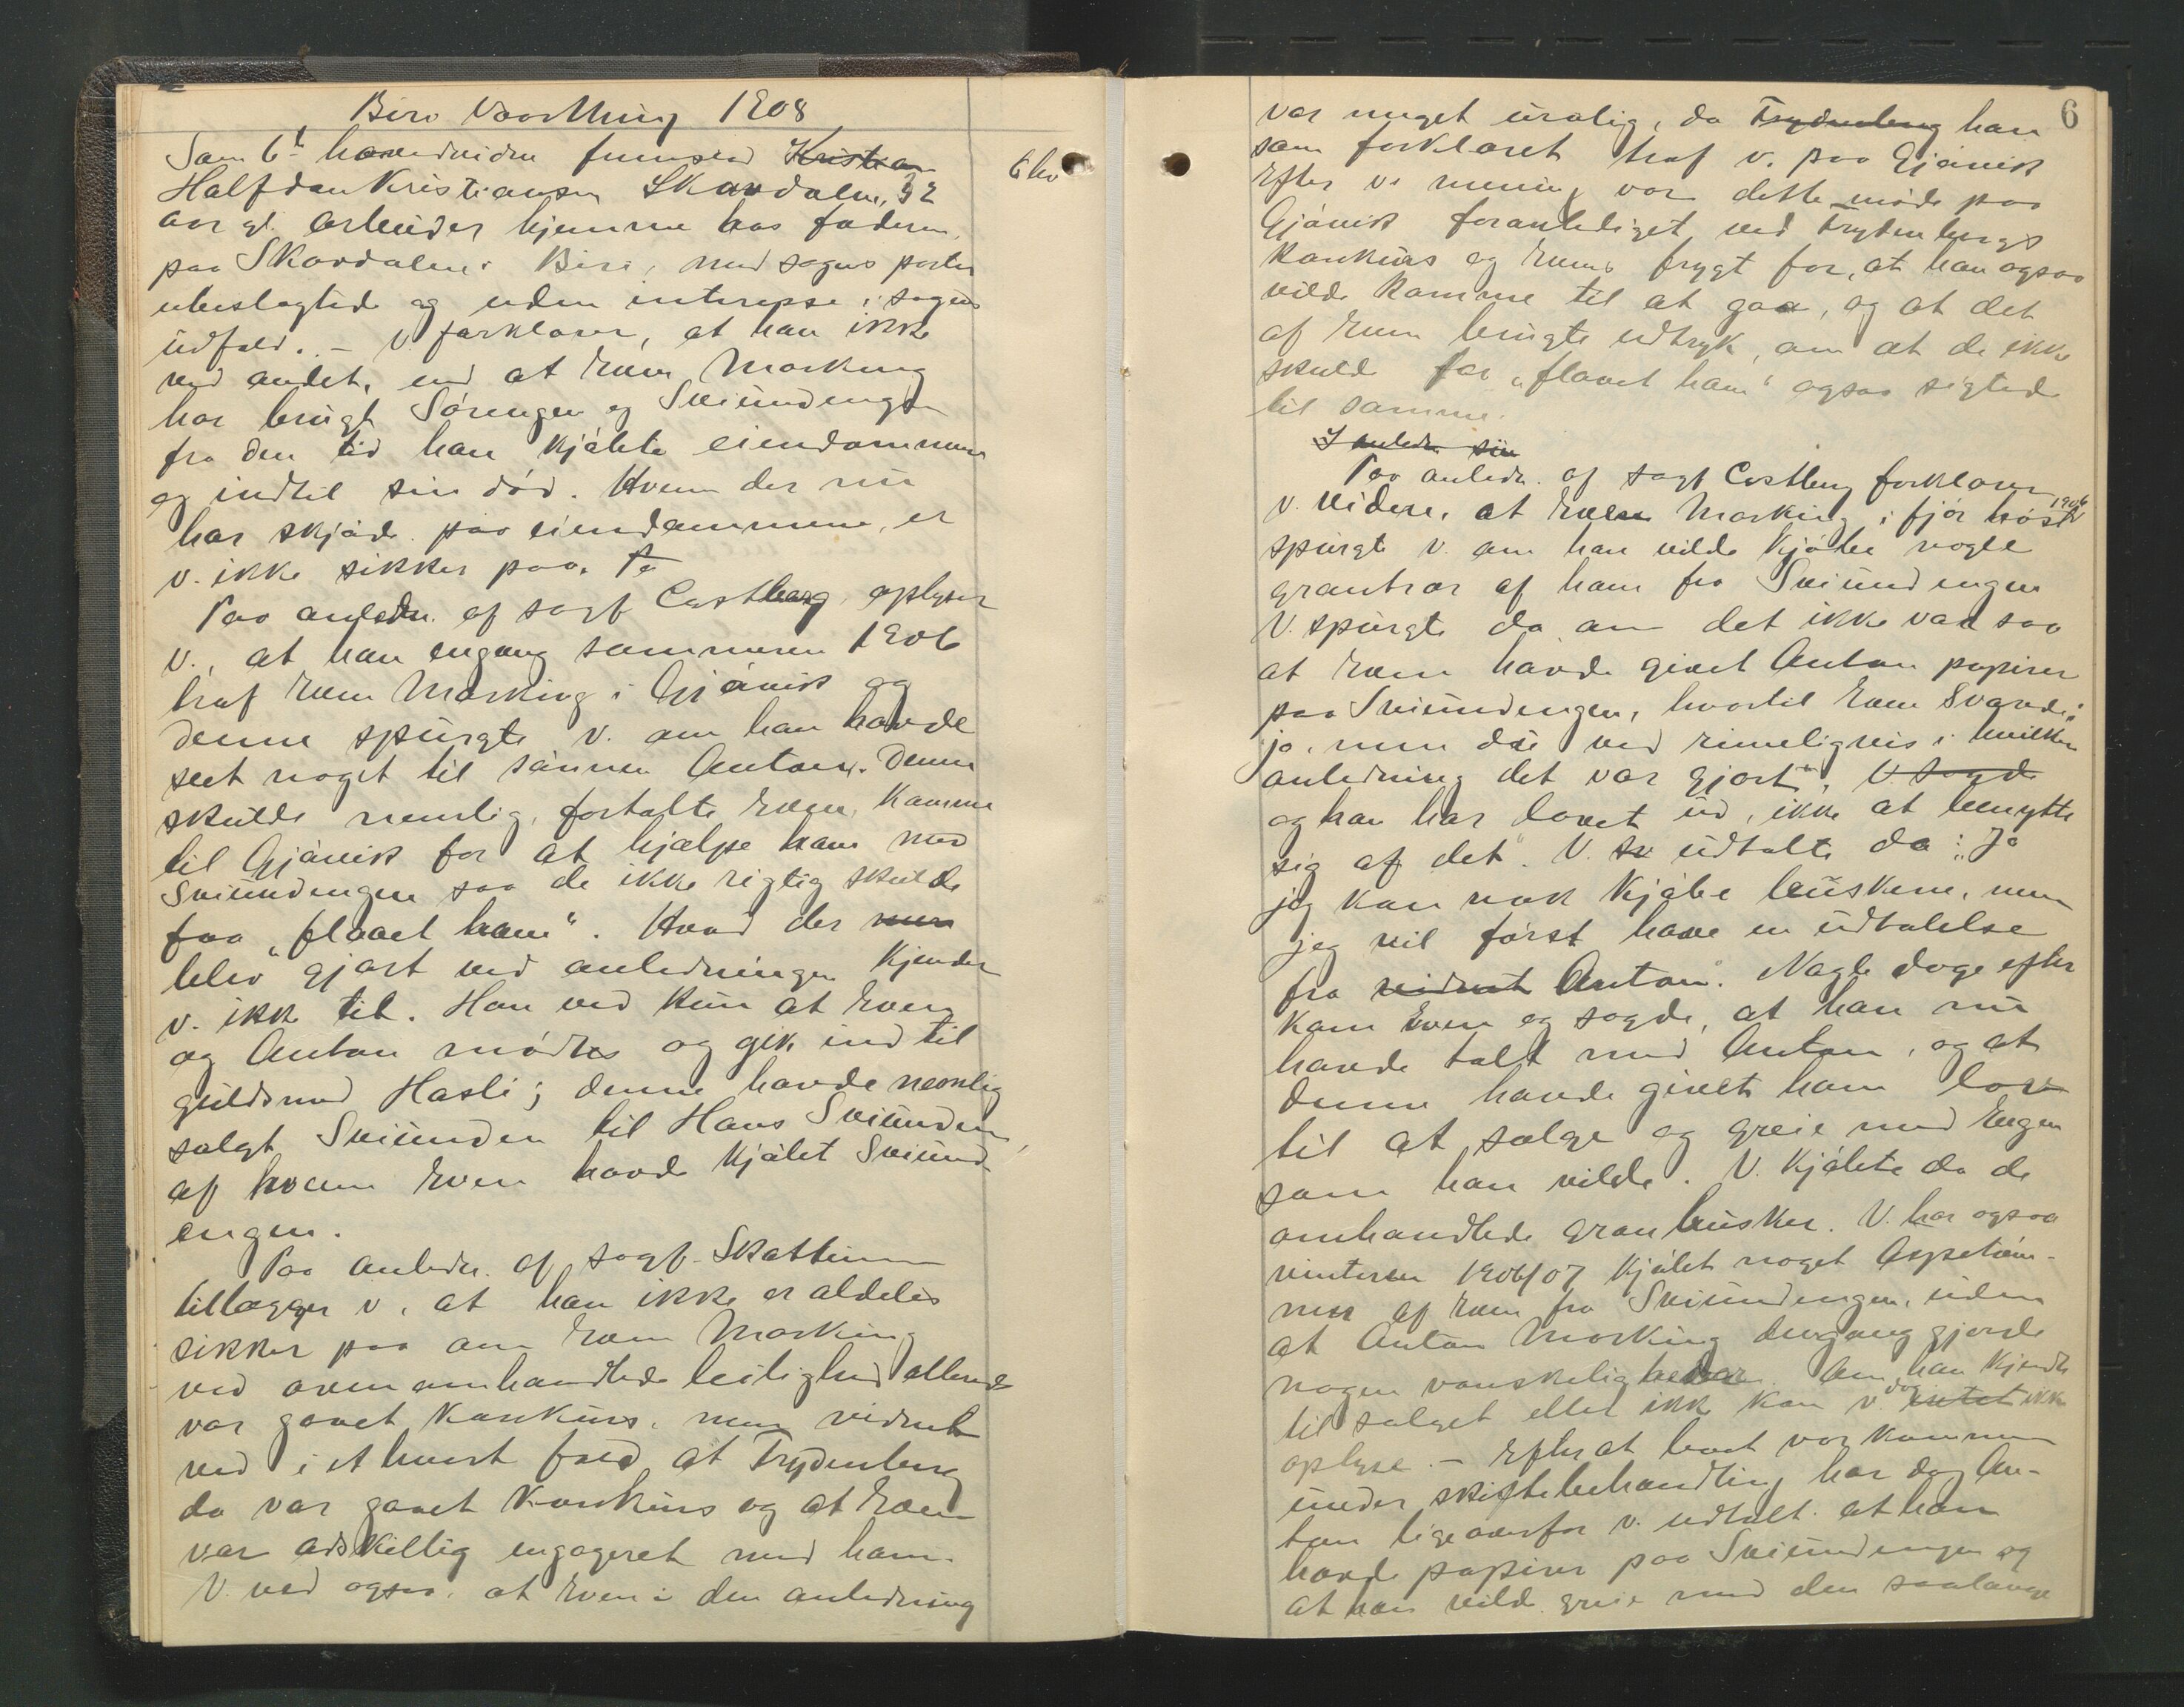 Biri Vaarthing 1908
Som 6t hovedvidne fremstod Kristian
6 hv
Halfdan Kristiansen Skardalen, 32
aar gl. arbeider hjemme hos faderen
paa Skardalen i Biri, med sagens parter
ubeslægtede og uden interesse i sagens
udfald. - V. forklarer, at han ikke
ved andet, end at Even Morking
har brugt Sörengen og Sviundengen
fra den tid han kjöbte eiendommen
og indtil sin död. Hvem der nu
har skjöde paa eiendommene, er
v. ikke sikker paa. Pa
Paa anledn. af sagf Castberg oplyser
v., at han engang sommeren 1906
traf Even Morking i Gjövik og
denne spurgte v. om han havde
seet noget til sönnen Anton. Denne
skulde nemlig, fortalte Even, komme
til Gjövik for at hjælpe ham med
Sviundengen saa de ikke rigtig skulde
faa "flaaet ham". Hvad der
blev gjort ved anledningen kjender
v. ikke til. Han ved kun at Even
og Anton mödtes og gik ind til
guldsmed Hasli; denne havde nemlig
solgt Sviunden til Hans Sviunden,
af hvem Even havde kjöbt Sviund-
engen.
Paa anledn. af sagf. Skattum
tillægger v., at han ikke er aldeles
sikker paa om Even Morking
ved ovenomhandlede leilighed allerede
var gaaet konkurs, men vidnet
ved i et hvert fald at Frydenberg
da var gaaet konkurs og at Even
var adskillig engageret med ham.
V. ved ogsaa, at Even i den anledning
6
var meget urolig, da Frydenberg han
som forklaret traf v. paa Gjövik
Efter v's mening var dette möde paa
Gjövik foranlediget ved Frydenbergs
konkurs og Evens frygt for, at han ogsaa
vilde komme til at gaa, og at det
af Even brugte udtryk, om at de ikke
skulde faa "flaaet ham" ogsaa sigtede
til samme.
I anledn
Paa anledn. af sagf Castberg forklarer
v. videre, at Even Morking i fjör höst 1906
spurgte v. om han vilde kjöbe nogle
grantrær af ham fra Sviundengen
V. spurgte da om det ikke var saa
at Even havde givet Anton papirer
paa Sviundengen, hvortil Even svarede:
jo, men du ved rimeligvis i hvilken
anledning det var gjort", V. sagde
og han har lovet ud, ikke at benytte
sig af det". V. sv udtalte da: "Ja
jeg kan nok kjöbe buskene, men
jeg vil först have en udtalelse
fra vidnet Anton". Nogle dage efter
kom Even og sagde, at han nu
havde talt med Anton, og at
denne havde givet ham lov
til at sælge og greie med Engen
som han vilde. V. kjöbte da de
omhandlede granbusker. V. har ogsaa
vinteren 1906/07 kjöbt noget Aspetöm-
mer af Even fra Sviundengen, uden
at Anton Morking dengang gjorde
nogen vanskeligheder. Om han kjendte
til salget eller ikke kan v. dog intet ikke
oplyse. - Efterat boet var kommen
under skiftebehandling har dog An-
ton ligeoverfor v. udtalt at han
havde papirer paa Sviundengen og
at han vilde greie med den saalænge